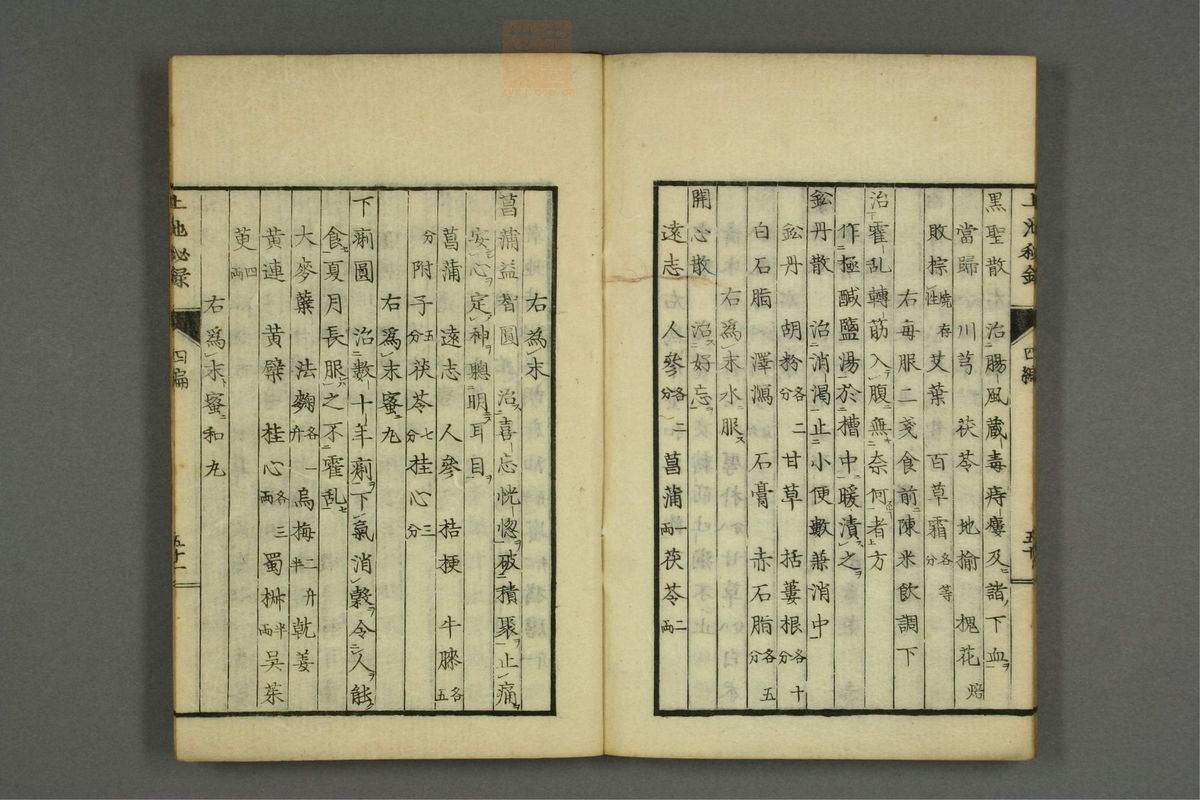 黒聖散　治腸風蔵毒痔瘻及諸下血
當歸　川芎　茯苓　地榆　槐花焰
敗棕燒存性　艾葉　百草霜各等分
右毎服二戔食前陳米飲調下
治霍乱轉筋入腹無奈何者方
作極鹹鹽湯於槽中暖漬之
鈆丹散　治消渇止小便數兼消中
鈆丹　胡粉各二分　甘草　括蔞根各十分
白石脂　澤瀉　石膏　赤石脂各五分
右爲末水服
開心散　治好忘
遠志　人參各二分　菖蒲一両　茯苓二両
上池秘録　四編　五十
右爲末
菖蒲益智圓　治喜忘恍惚破積聚止痛
安心定神聰明耳目
菖蒲　遠志　人參　桔梗　牛膝各五
分　附子五分　茯苓七分　桂心三分
右爲末蜜丸
下痢圓　治數十年痢下氣消穀令人能
食夏月長服之不霍乱
大麥蘖　法麹各一升　烏梅二升半　乾姜
黄連四両　黄檗　桂心各三両　蜀椒半両　吳茱
萸四両
右爲末蜜和丸
上池秘録　四編　五十一